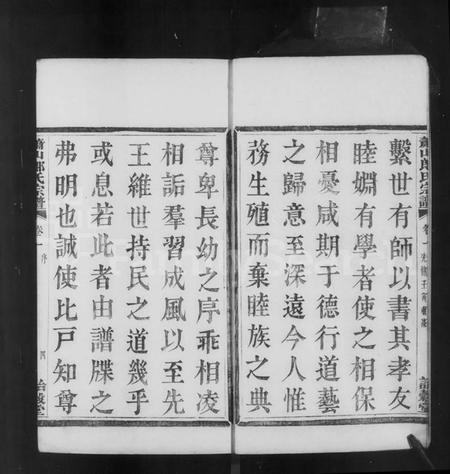 蕭山郎氏宗譜 卷一
繫世有師以書其孝友
睦婣有學者使之相保
相憂咸期于德行道藝
之歸意至深遠今人惟
務生殖而棄睦族之典
尊卑長幼之序乖相凌
相詬羣習成風以至先
王維世持民之道幾乎
或息若此者由譜牒之
弗明也誠使比戶知尊
蕭山郎氏宗譜 卷一 序 四